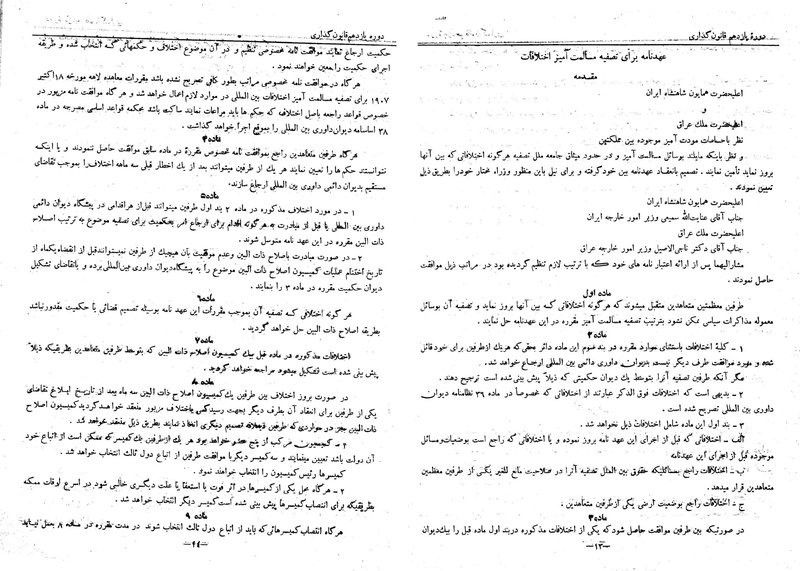 دوره یازدهم قانون گذاری
عهدنامه برای تصفیه مسالمت آمیز اختلافات
مقدمه
اعلیحضرت همایون شاهنشاه ایران
و
اعلیحضرت ملك عراق
نظر باحساسات مودت آمیز موجوده بین مملکتین
و نظر باینکه مایلند بوسائل مسالمت آمیز و در حدود میثاق جامعه ملل تصفیه هرگونه اختلافاتی که بین آنها
بروز نماید تأمین نمایند . تصمیم بانعقاد عهدنامه بین خود گرفته و برای نیل باین منظور وزراء مختار خودرا بطریق ذیل
تعیین نمودند .
اعلیحضرت همایون شاهنشاه ایران
جناب آقای عنایت‌الله سمیعی وزیر امور خارجه ایران
اعلیحضرت ملك عراق
جناب آقای دکتر ناجی‌الاصیل وزیر امور خارجه عراق
مشارالیهما پس از ارائه اعتبار نامه های خود که با ترتیب لازم تنظیم گردیده بود در مراتب ذیل موافقت
حاصل نمودند .
ماده اول
طرفین معظمتین متعاهدین متقبل میشوند که هرگونه اختلافاتی که بین آنها بروز نماید و تصفیه آن بوسائل
معموله مذاکرات سیاسی ممکن نشود بترتیب تصفیه مسالمت آمیز مقرره در این عهدنامه حل نمایند .
ماده ۲
۱ - کلیهٔ اختلافات باستثنای موارد مقرره در بند سوم این ماده دائر بحقی که هر یك از طرفین برای خود قائل
شده و مورد موافقت طرف دیگر نیست، بدیوان داوری دائمی بین المللی ارجاع خواهد شد.
مگر آنکه طرفین تصفیه آنرا بتوسط یك دیوان حکمیتی که ذیلاً پیش بینی شده است ترجیح دهند .
۲ - بدیهی است که اختلافات فوق الذکر عبارتند از اختلافاتی که خصوصاً در ماده ۳۶ نظامنامه دیوان
داوری بین المللی تصریح شده است .
۳ - بند اول این ماده شامل اختلافات ذیل نخواهد شد .
الف - اختلافاتی که قبل از اجرای این عهد نامه بروز نموده و یا اختلافاتی که راجع است بوضعیات‌ومسائل
موجوده قبل از اجرای این عهدنامه
ب - اختلافات راجع بمسائلیکه حقوق بین الملل تصفیه آنرا در صلاحیت مانع للغیر یکی از طرفین معظمین
متعاهدین قرار میدهد .
ج - اختلافات راجع بوضعیت ارضی یکی از طرفین متعاهدین .
ماده ۳
در صورتیکه بین طرفین موافقت حاصل شود که یکی از اختلافات مذکوره در بند اول ماده قبل را بیك دیوان
- ۱۳ -
دوره یازدهم قانون گذاری
حکمیت ارجاع نمایند موافقت نامه مخصوصی تنظیم و در آن موضوع اختلاف و حکمهائی که انتخاب شده و طریقه
اجرای حکمیت را معین خواهند نمود .
هر گاه در موافقت نامه مخصوصی مراتب بطور کافی تصریح نشده باشد مقررات معاهده لاهه مورخه ۱۸ اکتبر
۱۹۰۷ برای تصفیه مسالمت آمیز اختلافات بین المللی در موارد لازم اعمال خواهد شد و هر گاه موافقت نامه مزبور در
خصوص قواعد راجعه باصل اختلاف که حکم ها باید مراعات نمایند ساکت باشد محکمه قواعد اساسی مصرحه در ماده
۳۸ اساسنامه دیوان داوری بین المللی را بموقع اجرا خواهد گذاشت .
ماده ۴
هر گاه طرفین متعاهدین راجع بموافقت نامه مخصوص مقررهٔ در ماده سابق موافقت حاصل ننمودند و یا اینکه
نتوانستند حکم ها را تعیین نمایند هر یك از طرفین میتوانند بعد از یك اخطار قبلی سه ماهه اختلاف را بموجب تقاضای
مستقیم بدیوان دائمی داوری بین المللی ارجاع سازند.
ماده ۵
۱ - در مورد اختلاف مذکوره در ماده ۲ بند اول طرفین میتوانند قبل از هر اقدامی در پیشگاه دیوان دائمی
داوری بین المللی یا قبل از مبادرت به هر گونه اقدام برای ارجاع امر بحکمیت برای تصفیه موضوع به ترتیب اصلاح
ذات البین مقرره در این عهد نامه متوسل شوند .
۲ - در صورت مبادرت باصلاح ذات البین وعدم موفقیت بآن هیچیك از طرفین نمیتوانند قبل از انقضاء یکماه از
تاریخ اختتام عملیات کمیسیون اصلاح ذات البین موضوع را به پیشگاه دیوان داوری بین‌المللی برده و یا تقاضای تشکیل
دیوان حکمیت مقرره در ماده ۳ را بنمایند .
ماده ۶
هر گونه اختلافی که تصفیه آن بموجب مقررات این عهد نامه بوسیله تصمیم قضائی یا حکمیت مقدور نباشد
بطریقه اصلاح ذات البین حل خواهد گردید .
ماده ۷
اختلافات مذکوره در ماده قبل بیك کمیسیون اصلاح ذات البین که بتوسط طرفین متعاهدین بطریقیکه ذیلاً
پیش بینی شده است تشکیل میشود مراجعه خواهد گردید .
ماده ۸
در صورت بروز اختلاف بین طرفین یك کمیسیون اصلاح ذات البین سه ماه بعد از تاریخ ابلاغ تقاضای
یکی از طرفین برای انعقاد آن بطرف دیگر بجهت رسیدگی باختلاف مزبور منعقد خواهد گردید کمیسیون اصلاح
ذات البین جز در مواردی که طرفین تصمیم دیگری اتخاذ نمایند بطریق ذیل منعقد خواهد شد .
۱ - کمیسیون مرکب از پنج عضو خواهد بود هر یك از طرفین یك کمیسر که ممکن است از اتباع خود
آن دولت باشد تعیین مینمایند و سه کمیسر دیگر با موافقت طرفین از اتباع دول ثالث انتخاب خواهد شد .
کمیسرها رئیس کمیسیون را انتخاب خواهند نمود .
۲ - هر گاه محل یکی از کمیسرها در اثر فوت یا استعفا یا علت دیگری خالی شود در اسرع اوقات ممکنه
بطریقیکه برای انتصاب کمیسرها پیش بینی شده است کمیسر دیگر انتخاب خواهد شد .
ماده ۹
هر گاه انتصاب کمیسرهائی که باید از اتباع دول ثالث انتخاب شوند در مدت مقرره در ماده ۸ بعمل نیاید
- ۱۴ -